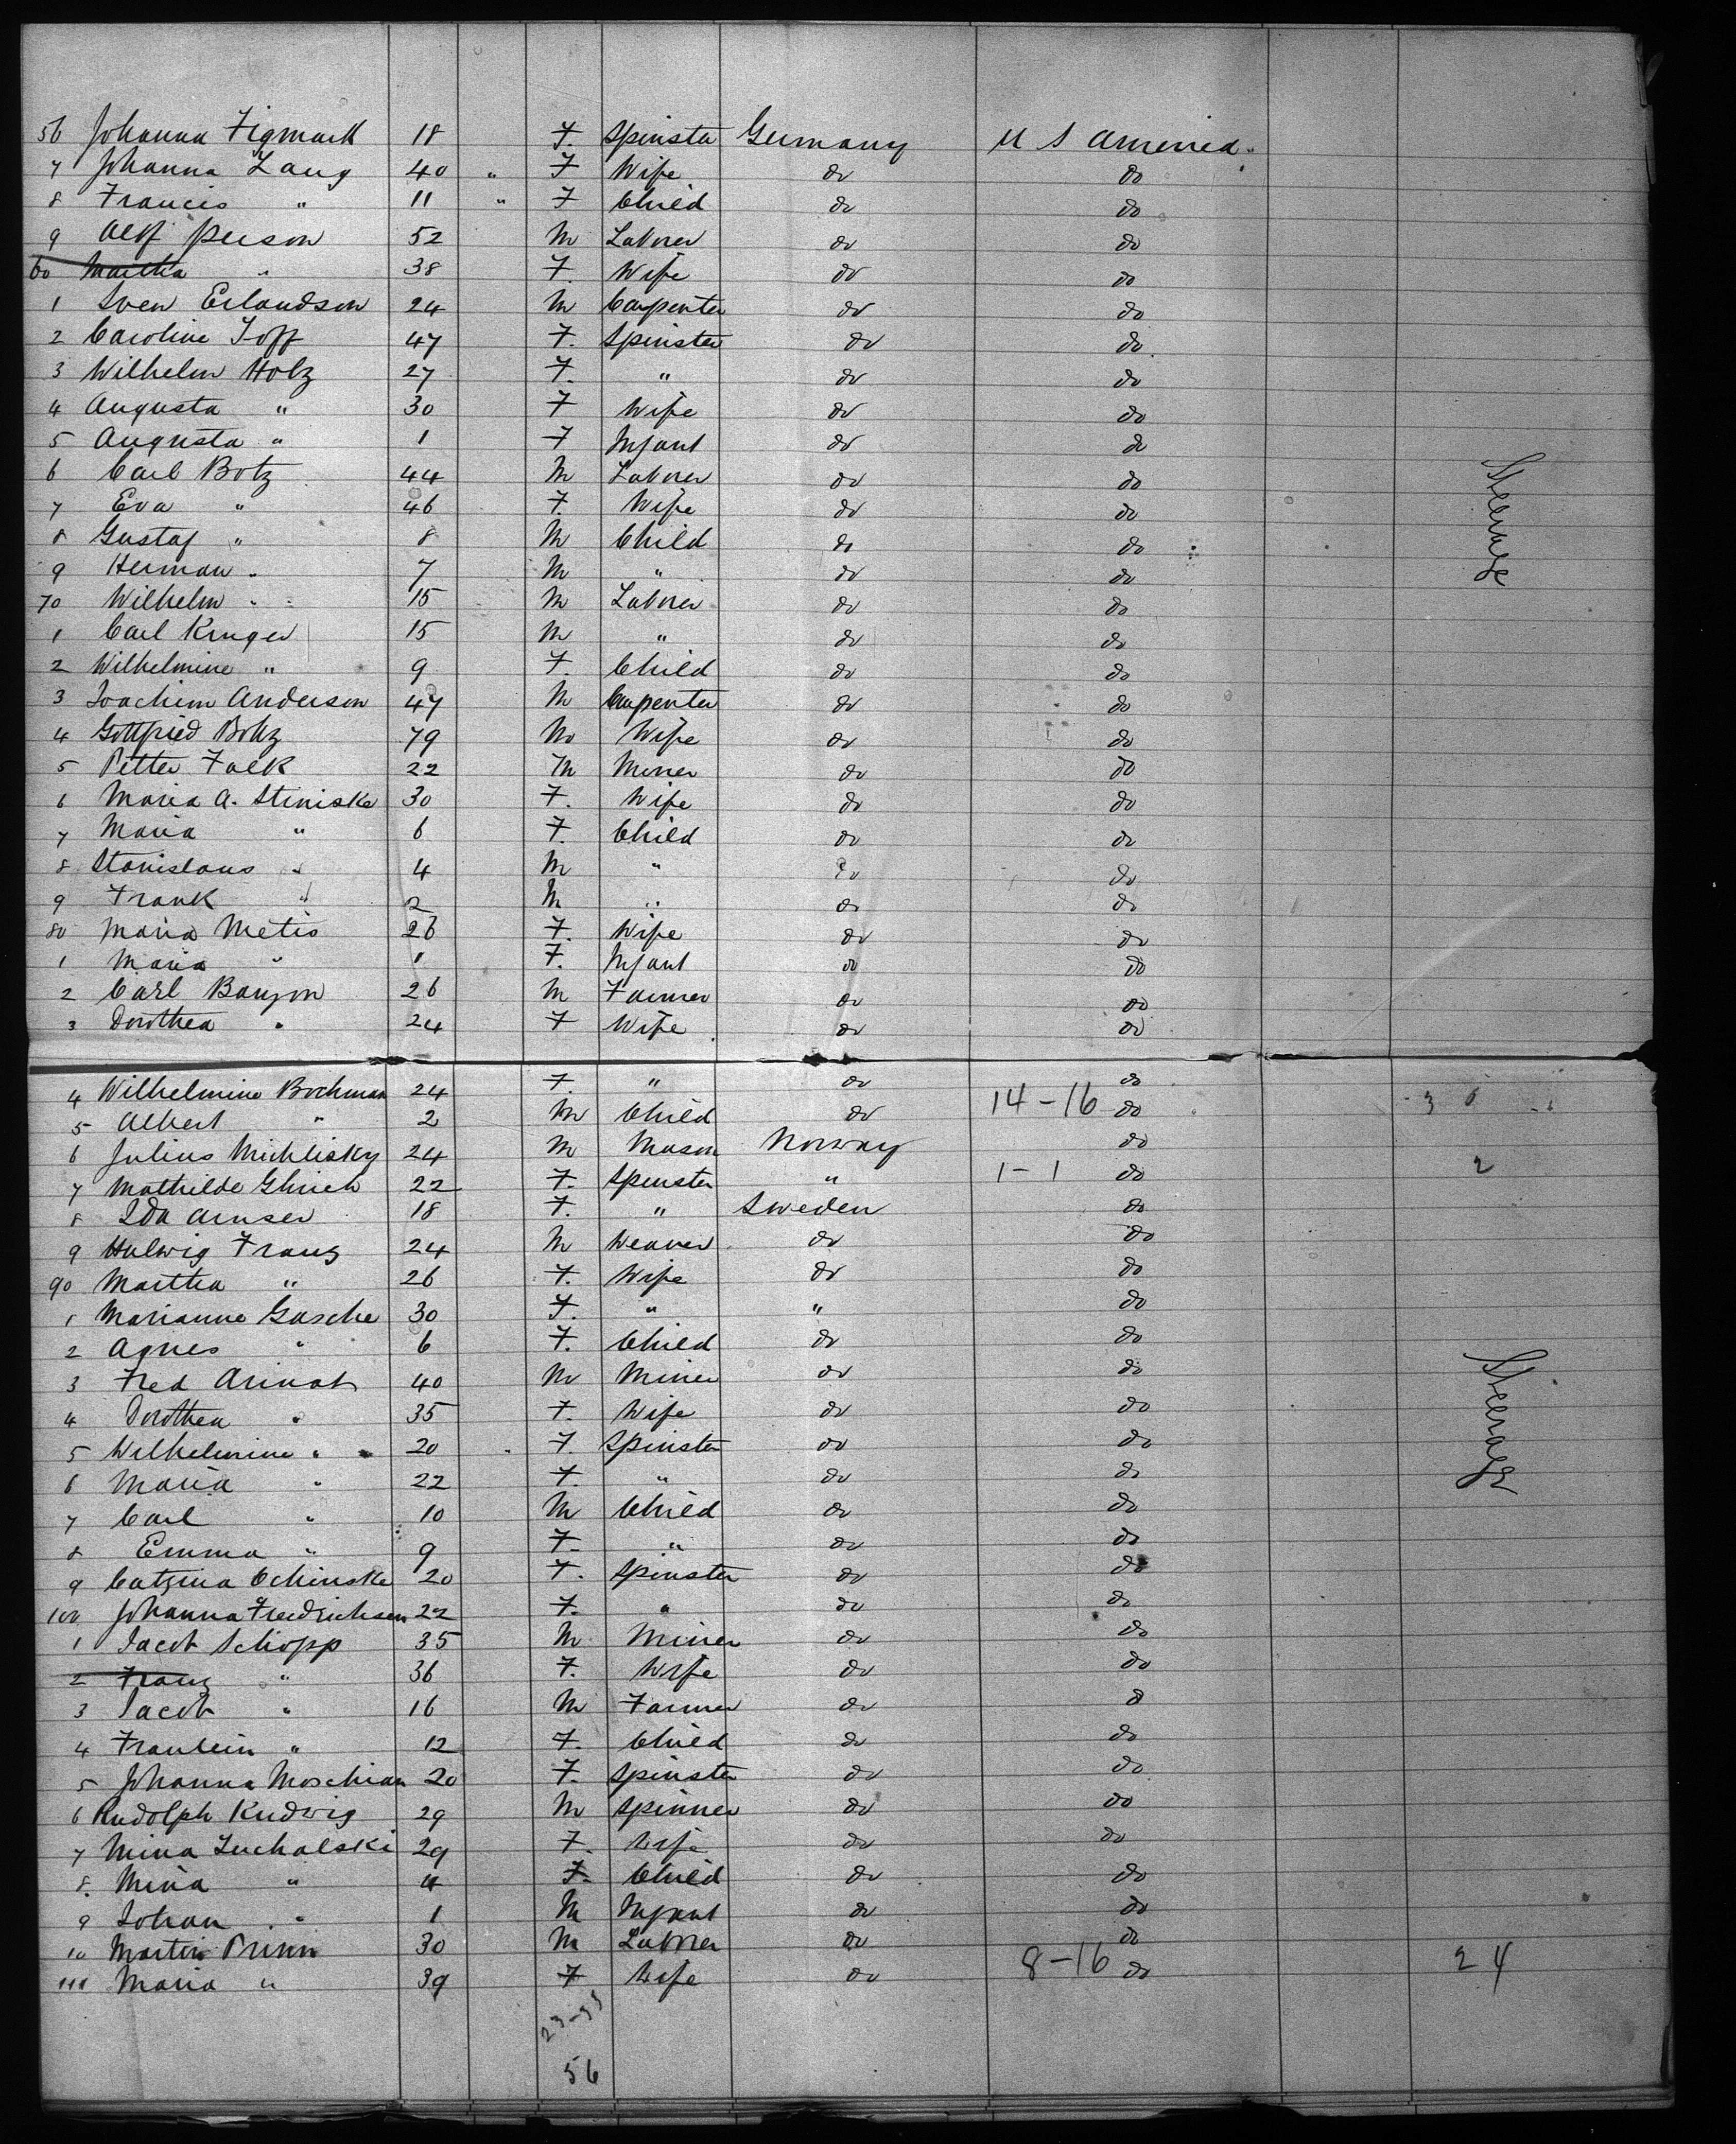 56 Johanna Zigmack 18 F. Spinster Germany U S America
7 Johanna Lang 40 " F Wife do do
8 Francis " 11 " F Child do do
9 Person 52 M Laborer do do
60 Martha " 38 F. Wife do do
1 Sven Erlandson 24 M Carpenter do do
2 Caroline Toff 47 F. Spinster do do
3 Wilhelm Holz 27 F. " do do
4 Augusta " 30 F Wife do do
5 Augusta " 1 F Infant do do
6 Carl Botz 44 M Laborer do do
7 Eva " 46 F. Wife do do
8 Gustaf " 8 M Child do do
9 Herman " 7 M " do do
70 Wilhelm " 15 M Laborer do do
1 Carl Kruger 15 M " do do
2 Wilhelmine " 9 F. Child do do
3 Joachim Anderson 47 M Carpenter do do
4 Gottfried Botz 79 M Wife do do
5 Petter Falk 22 M Miner do do
6 Maria A. Steniske 30 F. Wife do do
7 Maria " 6 F. Child do do
8 Stanislaus " 4 M " do do
9 Frank " 2 M " do do
80 Maria Metis 26 F. Wife do do
1 Maria " 1 F. Infant do do
2 Carl 26 M Farmer do do
3 Dorothea " 24 F Wife do do
Steerage
4 Wilhelmine Bochman 24 F. " do do
5 Albert " 2 M Child do 14-16 do
6 Julius Michlisky 24 M Mason Norway do
7 Mathilde 22 F. Spinster " 1-1 do 2
8 Ida Amser 18 F. " Sweden do
9 Halwig Franz 24 M Weaver do do
90 Martha " 26 F. Wife do do
1 Marianne Gasche 30 F. " " do
2 Agnes " 6 F. Child do do
3 Fred Arinat 40 M Miner do do
4 Dorothea " 35 F. Wife do do
5 Wilhelmine " 20 F. Spinster do do
6 Maria " 22 F. " do do
7 Carl " 10 M Child do do
8 Emma " 9 F. " do do
9 Catzina Ochinske 20 F. Spinster do do
100 Johanna Fredrichsen 22 F. " do do
1 Jacob Schopp 35 M Miner do do
2 Franz " 36 F. Wife do do
3 Jacob " 16 M Farmer do do
4 Fraulein " 12 F. Child do do
5 Johanna Moschian 20 F. Spinster do do
6 Rudolph Kudwig 29 M Spinner do do
7 Mina Lucholski 29 F. Wife do do
8. Mina " 4 F. Child do do
9 Johan " 1 M Infant do do
10 Martin Primi 30 M Laborer do do
111 Maria " 39 F Wife do 8-16 do 24
Steerage
23-33
56